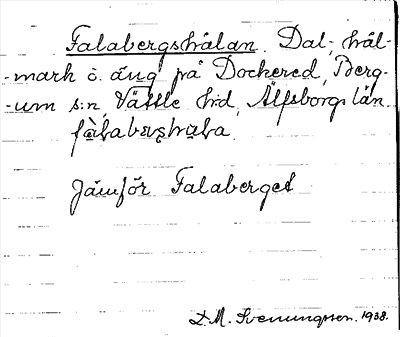 Falabergshålan. Dal-, hål-
-mark o. äng på Dockered, Berg-
-um s:n, Vättle hd, Älfsborgs län.
Jämför Falaberget
D. M. Svenungsson. 1938.